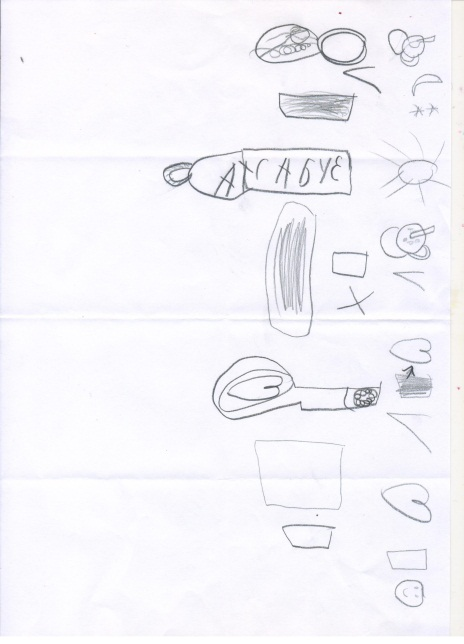 АГАБУЕ